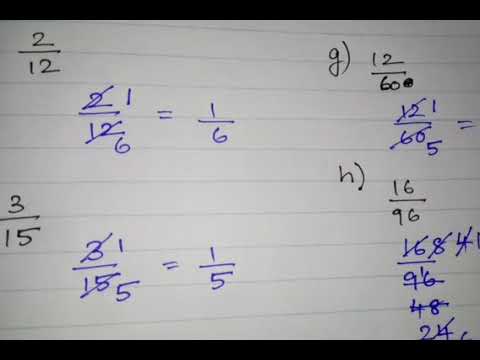 2/12
2/12 1 6 = 1/6
3/15
3/15 1 5 = 1/5
g) 12/60
12/60 1 5 =
h) 16/96
16 8 4 1
96
48
24